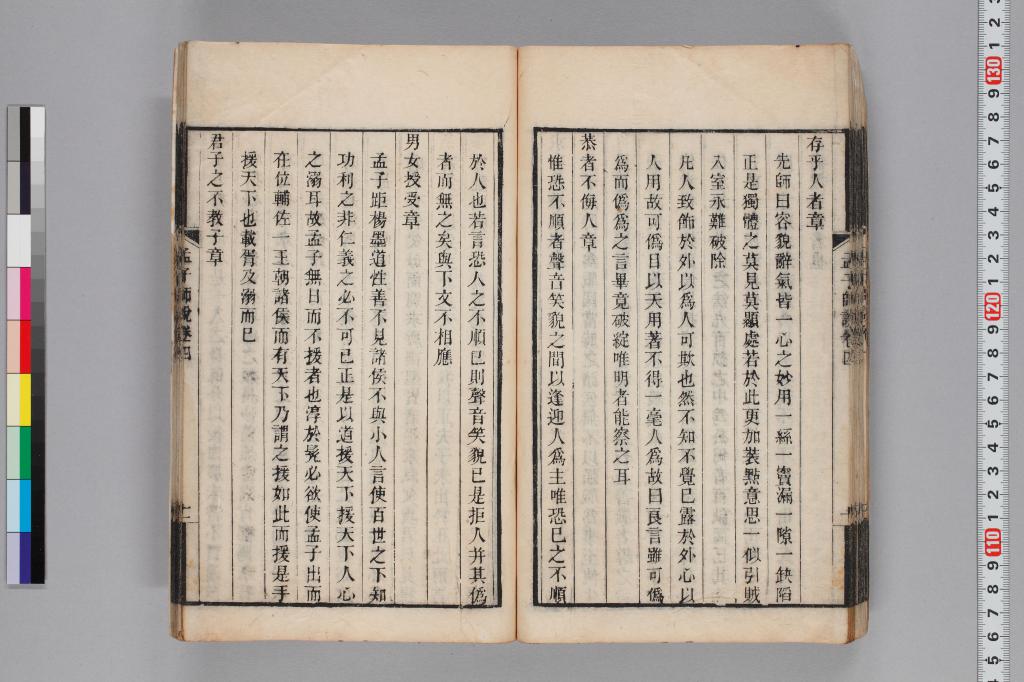 存乎人者章
先師曰容貌辭氣皆一心之妙用一絲一竇漏一隙一缺陷
正是獨體之莫見莫顯處若於此更加裝點意思一似引賊
入室永難破除
凡人致飾於外以為人可欺也然不知不覺已露於外心以
人用故可僞目以天用著不得一毫人爲故曰良言雖可僞
爲而僞爲之言畢竟破綻唯明者能察之耳
恭者不侮人章
惟恐不順者聲音笑貌之間以逢迎人爲主唯恐已之不順
於人也若言恐人之不順已則聲音笑貌已是拒人并其僞
者而無之矣與下文不相應
男女授受章
孟子距楊墨道性善不見諸侯不與小人言使百世之下知
功利之非仁義之必不可已正是以道援天下援天下人心
之溺耳故孟子無日而不援者也淳於髡必欲使孟子出而
在位輔佐王朝諸侯而有天下乃謂之援如此而援是手
援天下也載胥及溺而已
君子之不教子章
孟子師說卷四
十
130
120
110